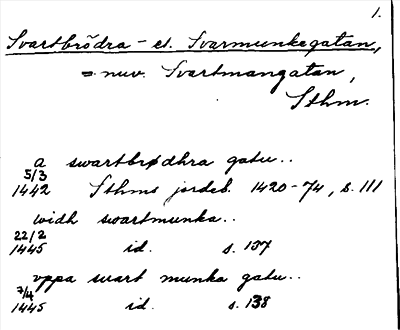 1.
Svartbrödra- el. Svarmunkegatan,
= nuv. Svartmangatan,
Sthm.
a swartbrødhra gatu..
5/3
1442 Sthms jordeb. 1420-74, s. 111
widh swartmunka..
22/2
1445 id. s. 137
vppa swart munka gatu..
7/4
1445 id. s. 138